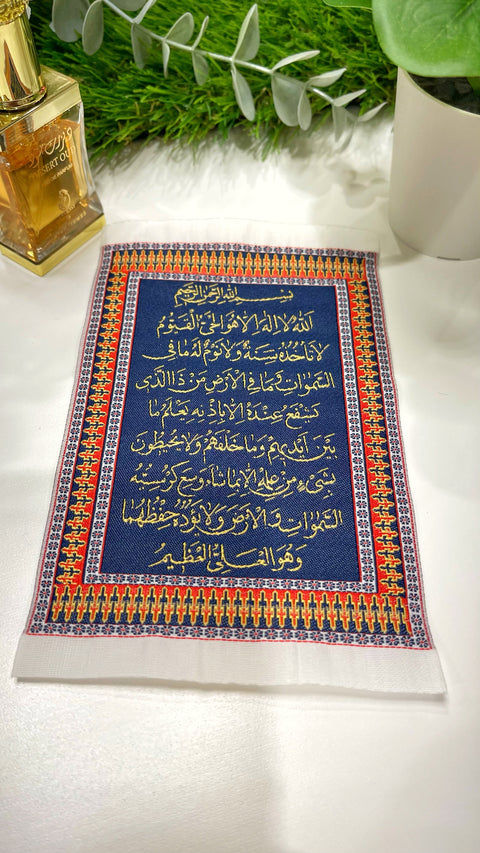 بسم الله الرحمن الرحيم
الله لا اله الا هو الحي القيوم
لا تأخذه سنة ولا نوم له ما في
السموات وما في الارض من ذا الذي
يشفع عنده الا باذنه يعلم ما
بين ايديهم وما خلفهم ولا يحيطون
بشيء من علمه الا بما شاء وسع كرسيه
السموات والارض ولا يؤده حفظهما
وهو العلي العظيم
SERT OUD